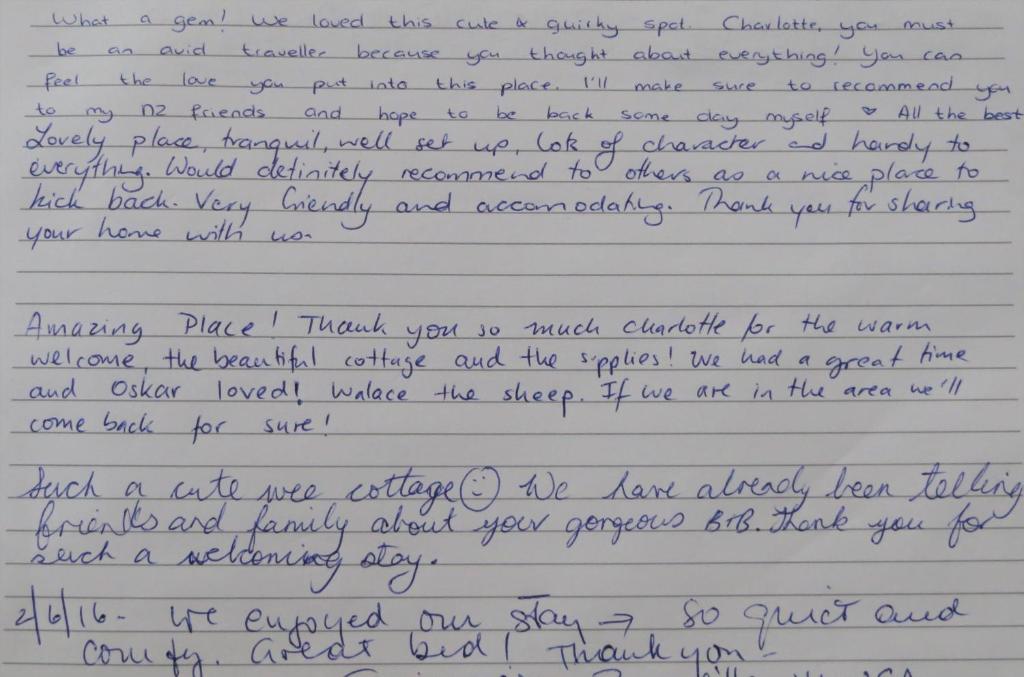 What a gem! We loved this cute & quirky spot. Charlotte, you must
be an avid traveller because you thought about everything! You can
feel the love you put into this place. I'll make sure to recommend you
to my NZ friends and hope to be back some day myself ♡ All the best
Lovely place, tranquil, well set up, lots of character and handy to
everything. Would definitely recommend to others as a nice place to
kick back. Very friendly and accomodating. Thank you for sharing
your home with us.
Amazing Place! Thank you so much Charlotte for the warm
welcome, the beautiful cottage and the supplies! We had a great time
and Oskar loved! Walace the sheep. If we are in the area we'll
come back for sure!
Such a cute wee cottage☺ We have already been telling
friends and family about your gorgeous B+B. Thank you for
such a welcoming stay.
2/6/16- We enjoyed our stay → so quiet and
comfy. Great bed! Thank you -